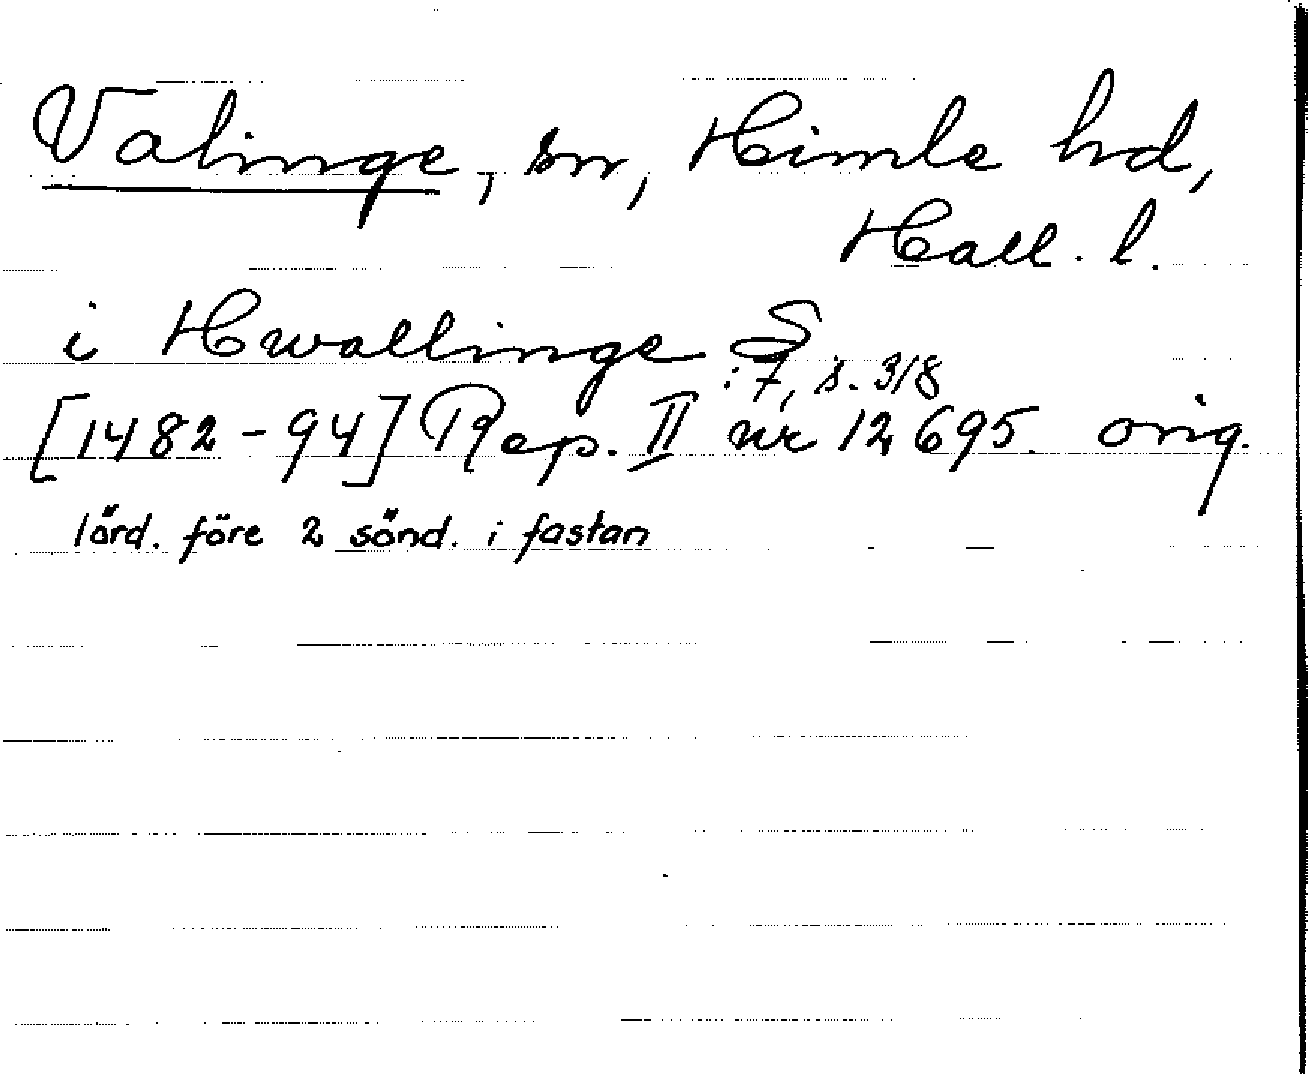 Valinge, sn, Himle hd,
Hall. l.
i Hwallinge S
[1482-94] Rep. II :7, s. 318 nr 12695. orig.
lörd. före 2 sönd. i fastan